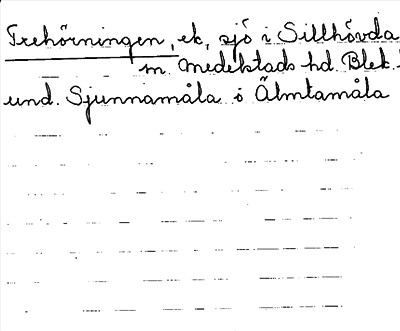 Trehörningen, ek, sjö i Sillhövda
m. Medelstads hd. Blek.
und. Sjunnamåla o Älmtamåla